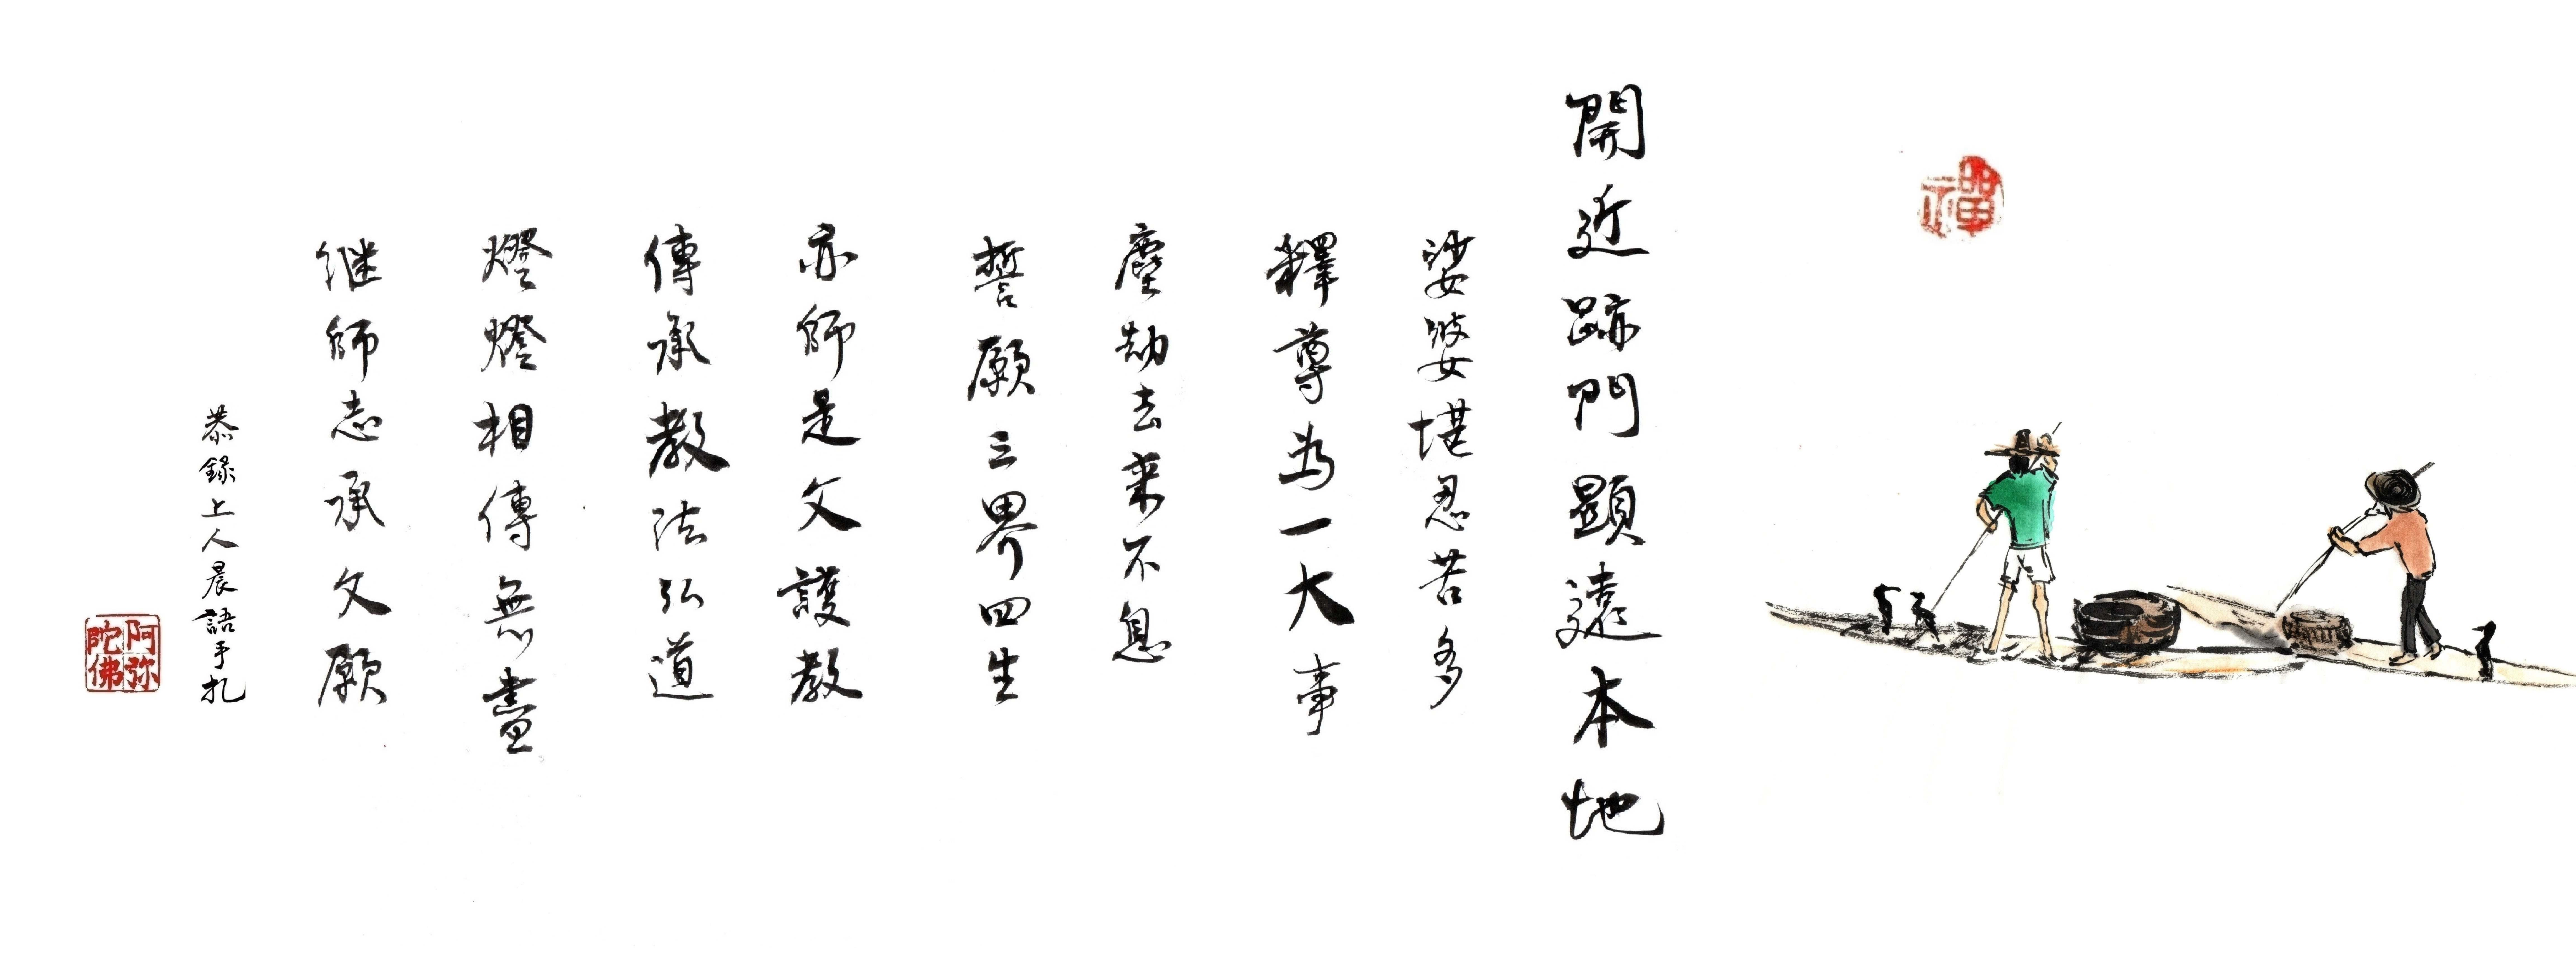 禪
開近跡門顯遠本地
娑婆堪忍苦多
釋尊為一大事
塵劫去来不息
誓願三界四生
亦師是父護教
傳承教法弘道
燈燈相傳無盡
继師志承父願
恭錄上人晨語手札
阿弥陀佛